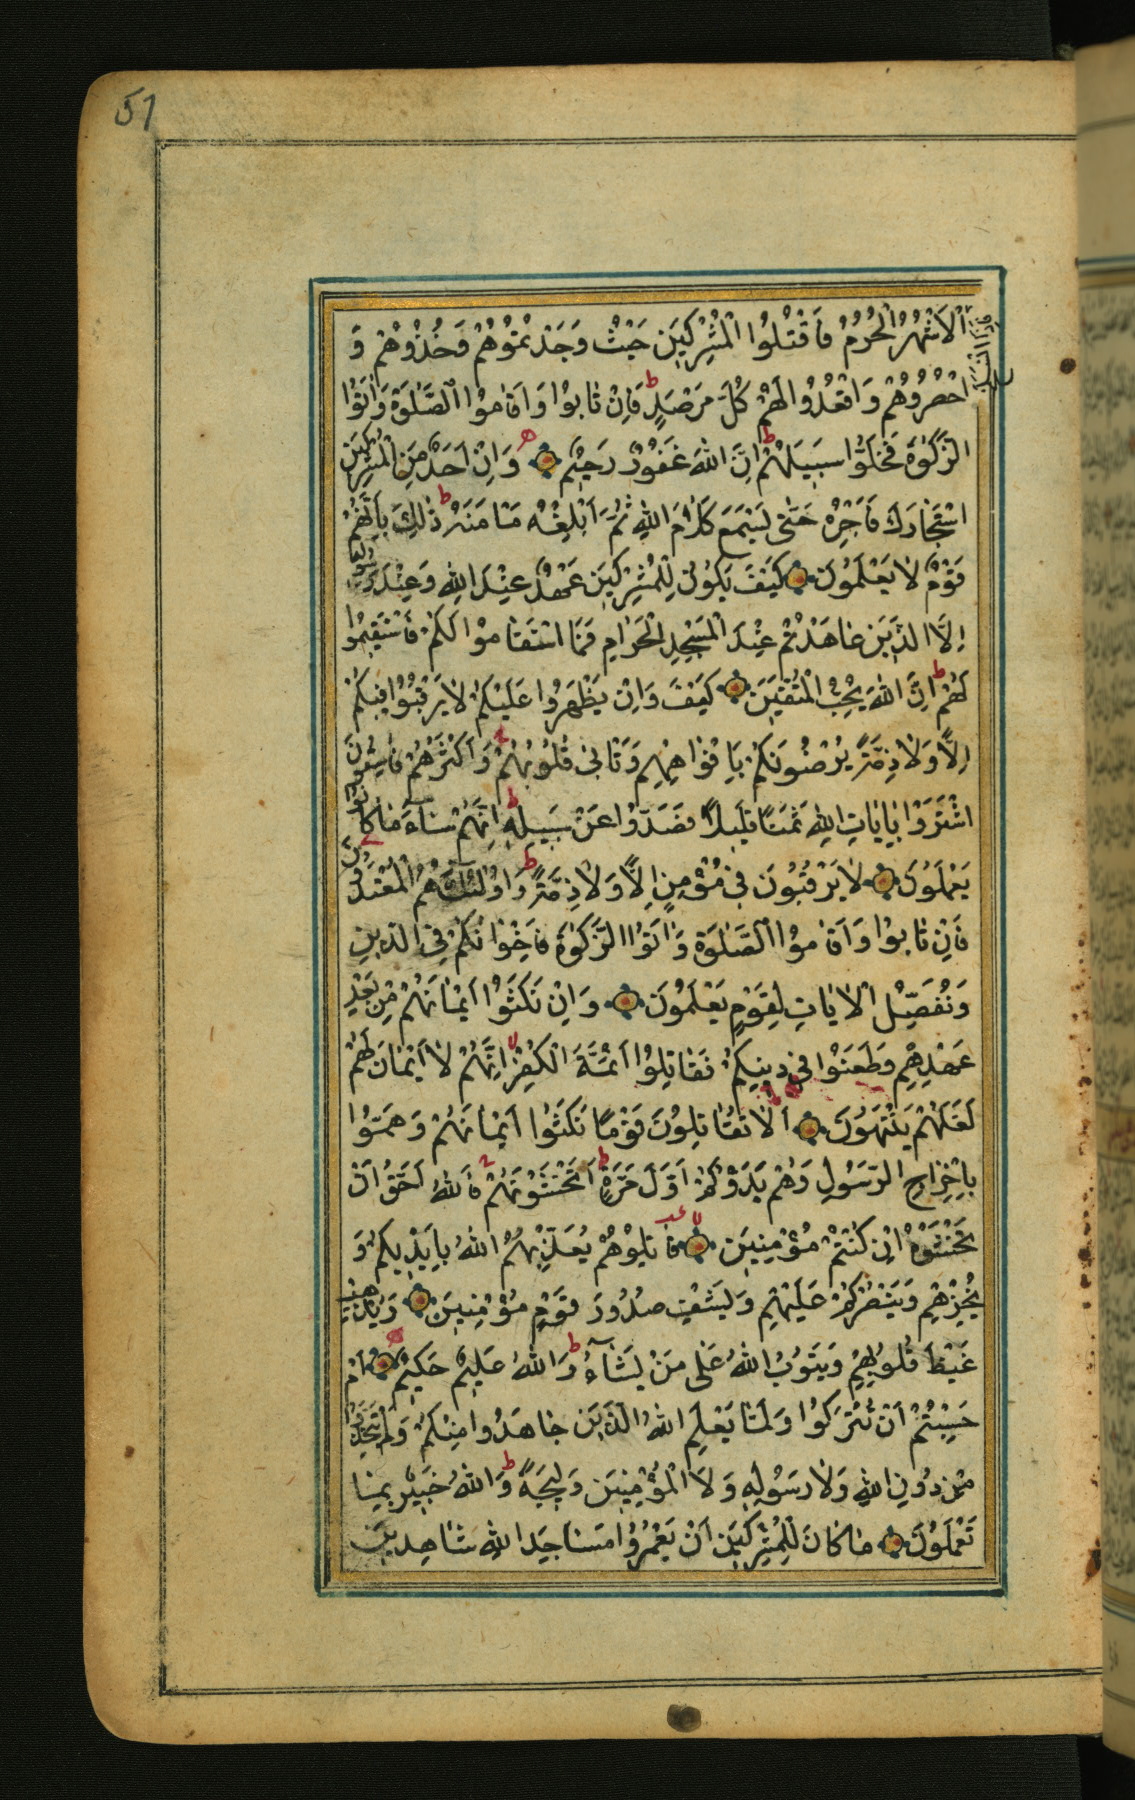 51
فاذا انسلخ
اَلْاَشْهُرُ الْحُرُمُ فَاقْتُلُوا الْمُشْرِكِينَ حَيْثُ وَجَدْتُمُوُهُمْ وَخُذُوُهُمْ وَ
احْصُرُوُهُمْ وَاقْعُدُوُا لَهُمْ كُلَّ مَرْصَدٍ ط فَاِنْ تٰابوُا وَاَقٰامُوُا الصَّلٰوةَ وَاٰتَوُا
الزَّكٰوةَ فَخَلُّوُا سَبِيلَهُمْ ط اِنَّ اللّٰهَ غَفُوُرٌ رَحِيمٌ ه وَاِنْ اَحَدٌ مِنَ الْمُشْرِكِينَ
اسْتَجٰارَكَ فَاَجِرْهُ حَتّٰى يَسْمَعَ كَلٰامَ اللّٰهِ ثُمَّ اَبْلِغْهُ مَاْمَنَهُ ط ذٰلِكَ بِاَنَّهُمْ
قَوْمٌ لٰا يَعْلَمُوُنَ كَيْفَ يَكُوُنُ لِلْمُشْرِكِينَ عَهْدٌ عِنْدَ اللّٰهِ وَعِنْدَ رَسُولِهِ
اِلَّا الَّذِينَ عٰاهَدْتُمْ عِنْدَ الْمَسْجِدِ الْحَرٰامِ فَمَا اسْتَقٰامُوُا لَكُمْ فَاسْتَقِيمُوا
لَهُمْ ط اِنَّ اللّٰهَ يُحِبُّ الْمُتَّقِينَ كَيْفَ وَاِنْ يَظْهَرُوا عَلَيْكُمْ لٰا يَرْقُبُوُا فِيكُمْ
اِلًّا وَلٰا ذِمَّةً يُرْضُونَكُمْ بِاَفْوٰاهِهِمْ وَتَاْبٰى قُلُوُبُهُمْ وَاَكْثَرُهُمْ فٰاسِقُونَ
اشْتَرَوْا بِاٰيٰاتِ اللّٰهِ ثَمَنًا قَلِيلًا فَصَدُّوا عَنْ سَبِيلِهِ ط اِنَّهُمْ سٰاۤءَ مٰا كٰانُوا
يَعْمَلُوُنَ لٰا يَرْقُبُونَ فِى مُؤْمِنٍ اِلًّا وَلٰا ذِمَّةً ط وَاُولٰئِكَ هُمُ الْمُعْتَدُونَ
فَاِنْ تٰابوُا وَاَقٰامُوُا الصَّلٰوةَ وَاٰتَوُا الزَّكٰوةَ فَاِخْوٰانُكُمْ فِى الدِّينِ
وَنُفَصِّلُ الْاٰيٰاتِ لِقَوْمٍ يَعْلَمُونَ وَاِنْ نَكَثُوُا اَيْمٰانَهُمْ مِنْ بَعْدِ
عَهْدِهِمْ وَطَعَنُوا فِى دِينِكُمْ فَقٰاتِلُوُا اَئِمَّةَ الْكُفْرِ لا اِنَّهُمْ لٰا اَيْمٰانَ لَهُمْ
لَعَلَّهُمْ يَنْتَهُوُنَ اَلٰا تُقٰاتِلُونَ قَوْمًا نَكَثُوُا اَيْمٰانَهُمْ وَهَمُّوُا
بِاِخْرٰاجِ الرَّسُولِ وَهُمْ بَدَؤُكُمْ اَوَّلَ مَرَّةٍ ط اَتَخْشَوْنَهُمْ فَاللّٰهُ اَحَقُّ اَنْ
تَخْشَوْهُ اِنْ كُنْتُمْ مُؤْمِنِينَ قٰاتِلُوُهُمْ يُعَذِّبْهُمُ اللّٰهُ بِاَيْدِيكُمْ وَ
يُخْزِهِمْ وَيَنْصُرْكُمْ عَلَيْهِمْ وَيَشْفِ صُدُورَ قَوْمٍ مُؤْمِنِينَ وَيُذْهِبْ
غَيْظَ قُلُوبِهِمْ وَيَتُوبُ اللّٰهُ عَلٰى مَنْ يَشٰاۤءُ ط وَاللّٰهُ عَلِيمٌ حَكِيمٌ ه اَمْ
حَسِبْتُمْ اَنْ تُتْرَكُوُا وَلَمّٰا يَعْلَمِ اللّٰهُ الَّذِينَ جٰاهَدُوا مِنْكُمْ وَلَمْ يَتَّخِذُوا
مِنْ دُوُنِ اللّٰهِ وَلٰا رَسُوُلِهِ وَلَا الْمُؤْمِنِينَ وَلِيجَةً ط وَاللّٰهُ خَبِيرٌ بِمٰا
تَعْمَلُوُنَ مٰا كٰانَ لِلْمُشْرِكِينَ اَنْ يَعْمُرُوُا مَسٰاجِدَ اللّٰهِ شٰاهِدِينَ